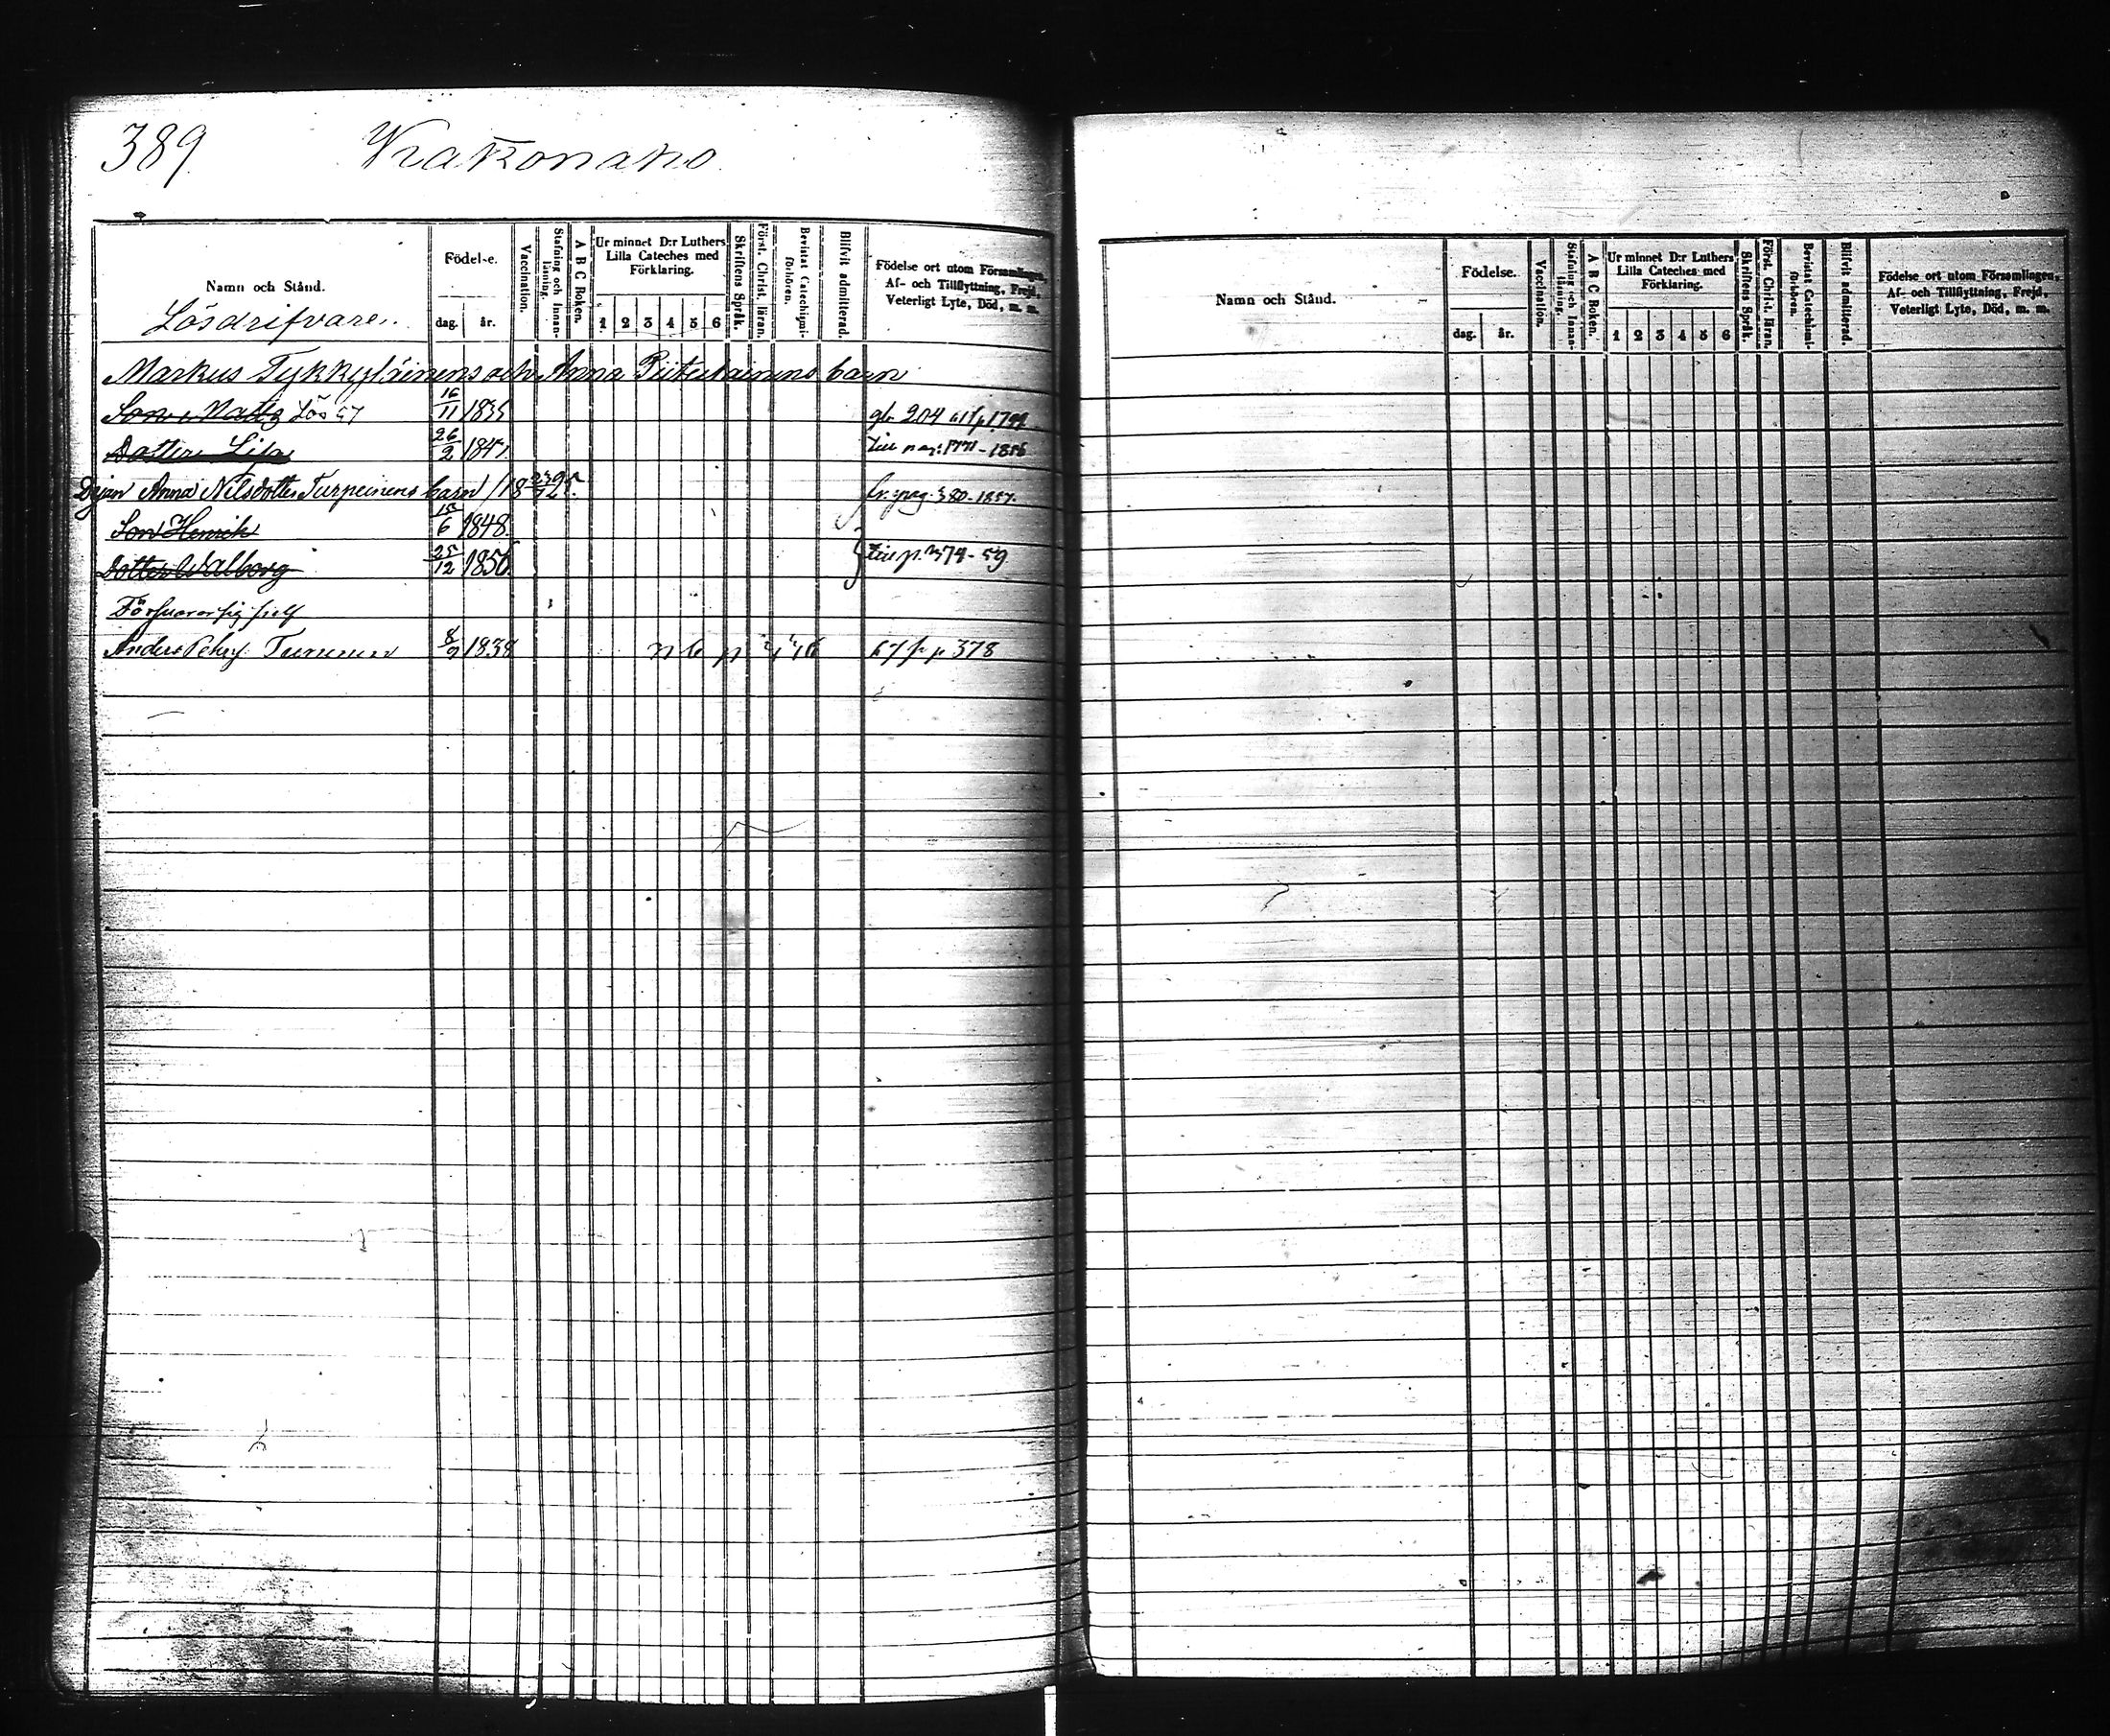 389 Wiakonaho
Namn och Stånd.
Lösdrifvare.
Födelse.
dag. år.
Vaccination.
Stafning och Innanläsning.
A B C Boken.
Ur minnet D:r Luthers Lilla Cateches med Förklaring.
1 2 3 4 5 6
Skriftens Språk.
Först. Christ. läran.
Bevistat Catechismiförhören.
Blifvit admitterad.
Födelse ort utom Församlingen. Af- och Tillflyttning, Frejd, Veterligt Lyte, Död, m. m.
Markus Tykkyläinens och Anna barn
Son Matts Lös 57 16/11 1835 204
Dotter Lisa 26/2 184 1856
Anna Nilsdotter Turpeinens barn fr. pag. 380-1857.
Son Henrik 15/6 1848.
Dotter Walborg 25/12 1856. till p. 374-59
Försvarar sig sjelf
Anders Pehrs. Turunen 8/9 1838 67 fr p 378
Namn och Stånd.
Födelse.
dag. år.
Vaccination.
Stafning och Innanläsning.
A B C Boken.
Ur minnet D:r Luthers Lilla Cateches med Förklaring.
1 2 3 4 5 6
Skriftens Språk.
Först. Christ. läran.
Bevistat Catechismiförhören.
Blifvit admitterad.
Födelse ort utom Församlingen. Af- och Tillflyttning, Frejd, Veterligt Lyte, Död, m. m.